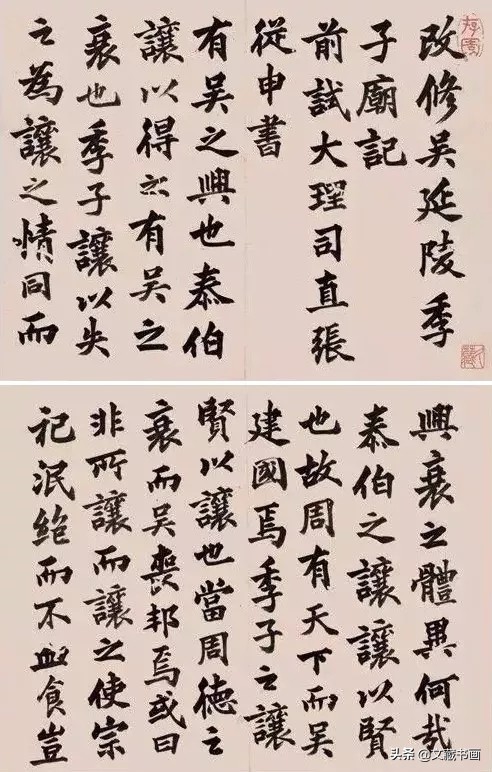 改修吴延陵季
子廟記
前試大理司直張
從申書
有吴之興也泰伯
讓以得之有吴之
衰也季子讓以失
之為讓之情同而
興衰之體異何哉
泰伯之讓讓以賢
也故周有天下而吴
建國焉季子之讓
賢以讓也當周德之
衰而吴喪邦焉或曰
非所讓而讓之使宗
祀泯絶而不血食豈
头条 @文藏书画